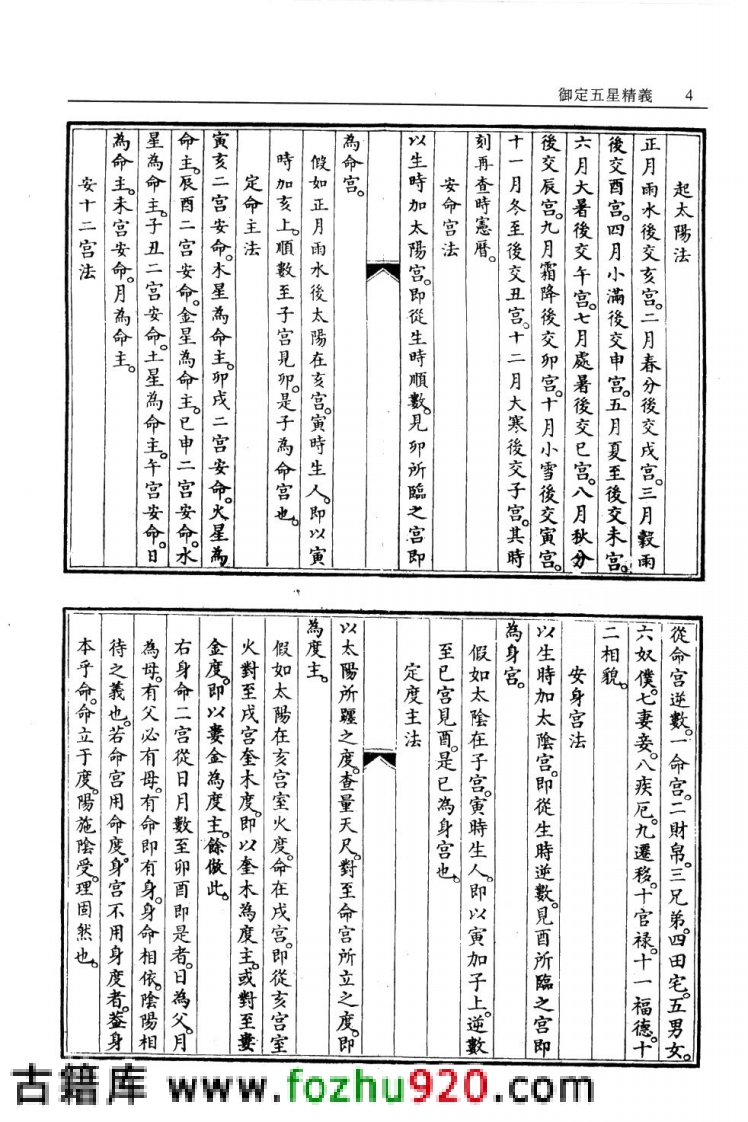 御定五星精義 4
起太陽法
正月雨水後交亥宮。二月春分後交戌宮。三月穀雨
後交酉宮。四月小滿後交申宮。五月夏至後交未宮。
六月大暑後交午宮。七月處暑後交巳宮。八月秋分
後交辰宮。九月霜降後交卯宮。十月小雪後交寅宮。
十一月冬至後交丑宮。十二月大寒後交子宮。其時
刻再查時憲曆。
安命宮法
以生時加太陽宮。即從生時順數。見卯所臨之宮即
為命宮。
假如正月雨水後太陽在亥宮。寅時生人。即以寅
時加亥上。順數至子宮見卯。是子為命宮也。
定命主法
寅亥二宮安命。木星為命主。卯戌二宮安命。火星為
命主。辰酉二宮安命。金星為命主。巳申二宮安命。水
星為命主。子丑二宮安命。土星為命主。午宮安命。日
為命主。未宮安命。月為命主。
安十二宮法
從命宮逆數。一命宮。二財帛。三兄弟。四田宅。五男女。
六奴僕。七妻妾。八疾厄。九遷移。十官祿。十一福德。十
二相貌。
安身宮法
以生時加太陰宮。即從生時逆數。見酉所臨之宮即
為身宮。
假如太陰在子宮。寅時生人。即以寅加子上。逆數
至巳宮見酉。是巳為身宮也。
定度主法
以太陽所躔之度。查量天尺。對至命宮所立之度。即
為度主。
假如太陽在亥宮室火度。命在戌宮。即從亥宮室
火對至戌宮奎木度。即以奎木為度主。或對至婁
金度。即以婁金為度主。餘倣此。
右身命二宮從日月數至卯酉即是者。日為父。月
為母。有父必有母。有命即有身。身命相依。陰陽相
待之義也。若命宮用命度。身宮不用身度者。蓋身
本乎命。命立于度。陽施陰受。理固然也。
古籍库 www.fozhu920.com